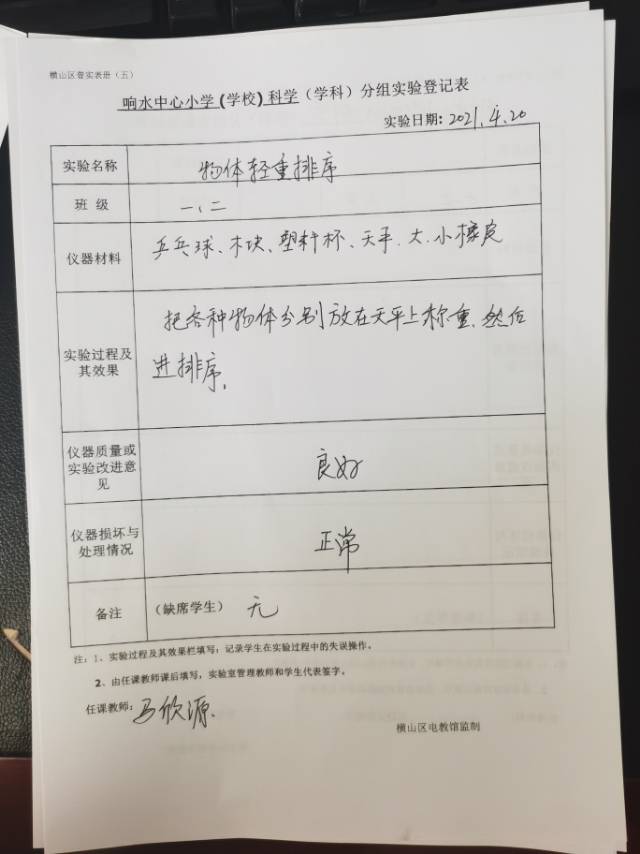 横山区普实表册（五）
响水中心小学(学校)科学（学科）分组实验登记表
实验日期：2021.4.20
实验名称 物体轻重排序
班 级 一、二
仪器材料 乒乓球、木块、塑料杯、天平、大、小橡皮
实验过程及其效果 把各种物体分别放在天平上称重，然后
进排序。
仪器质量或
实验改进意
见
良好
仪器损坏与
处理情况
正常
备注 （缺席学生） 无
注：1、实验过程及其效果栏填写：记录学生在实验过程中的失误操作。
2、由任课教师课后填写，实验室管理教师和学生代表签字。
任课教师：马欣源
横山区电教馆监制